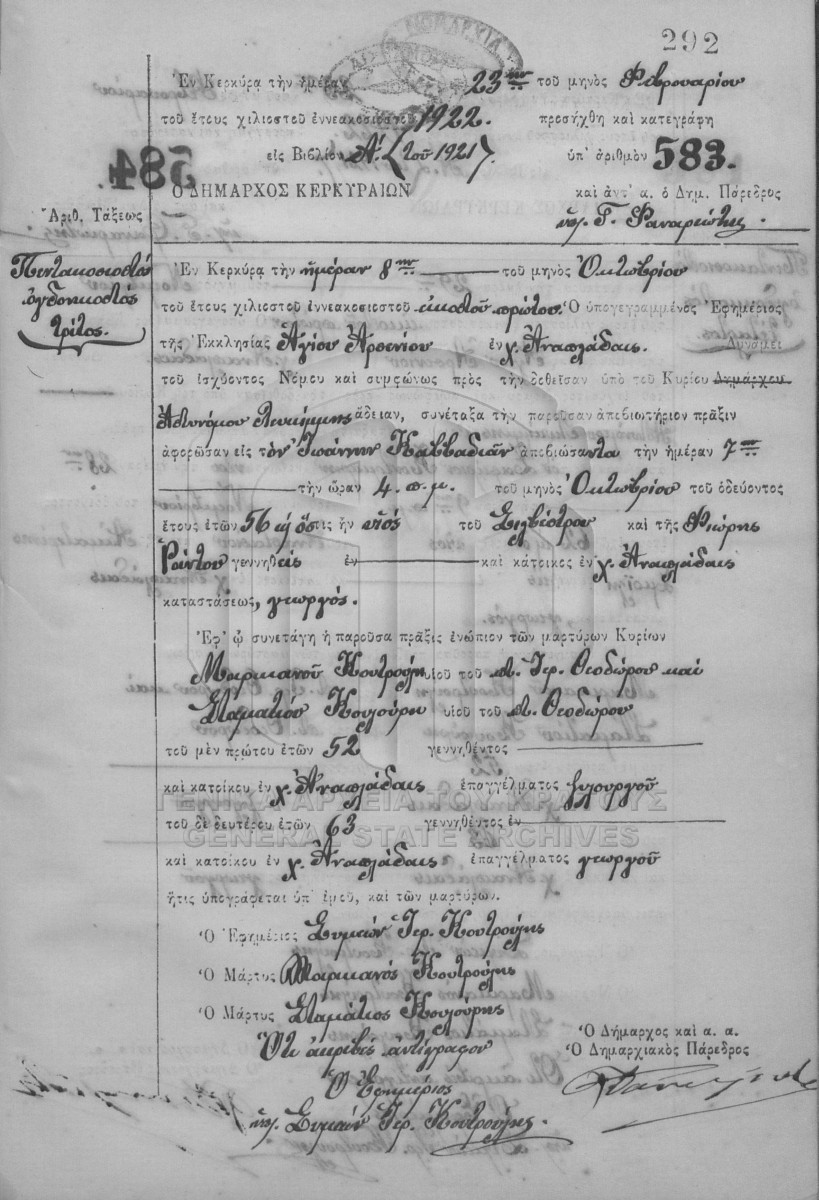 292
Ἐν Κερκύρᾳ τὴν ἡμέραν 23ην τοῦ μηνὸς Φεβρουαρίου
τοῦ ἔτους χιλιοστοῦ ἐννεακοσιοστοῦ 1922. προσήχθη καὶ κατεγράφη
εἰς Βιβλίον Α΄. (τοῦ 1921). ὑπ' ἀριθμὸν 583.
584
Ο ΔΗΜΑΡΧΟΣ ΚΕΡΚΥΡΑΙΩΝ καὶ ἀντ' α. ὁ Δημ. Πάρεδρος
Ἀριθ. Τάξεως ὑπ. Γ. Φαναριώτης
Πεντακοσιοστός
ὀγδοηκοστός
τρίτος.
Ἐν Κερκύρᾳ τὴν ἡμέραν 8ην τοῦ μηνὸς Ὀκτωβρίου
τοῦ ἔτους χιλιοστοῦ ἐννεακοσιοστοῦ εἰκοστοῦ πρώτου. Ὁ ὑπογεγραμμένος Ἐφημέριος
τῆς Ἐκκλησίας Ἁγίου Ἀρσενίου ἐν χ. Ἀναπλάδαις. Δυνάμει
τοῦ ἰσχύοντος Νόμου καὶ συμφώνως πρὸς τὴν δοθεῖσαν ὑπὸ τοῦ Κυρίου Δημάρχου
Ἀστυνόμου Λευκίμμης ἄδειαν, συνέταξα τὴν παροῦσαν ἀπεβιωτήριον πρᾶξιν
ἀφορῶσαν εἰς τὸν Ἰωάννην Καββαδίαν ἀποβιώσαντα τὴν ἡμέραν 7ην
τὴν ὥραν 4. π. μ. τοῦ μηνὸς Ὀκτωβρίου τοῦ ὁδεύοντος
ἔτους ἐτῶν 56 ὅστις ἦν υἱός τοῦ Σιλβέστρου καὶ τῆς Φιώρης
γεννηθείς ἐν καὶ κάτοικος ἐν χ. Ἀναπλάδαις
καταστάσεως, γεωργός.
Ἐφ' ᾧ συνετάγη ἡ παροῦσα πρᾶξις ἐνώπιον τῶν μαρτύρων Κυρίων
Μαρκιανοῦ Κουτρούλη υἱοῦ τοῦ π. Ἱερ. Θεοδώρου καὶ
Σταματίου Κουλούρη υἱοῦ τοῦ π. Θεοδώρου
τοῦ μὲν πρώτου ἐτῶν 52 γεννηθέντος
καὶ κατοίκου ἐν χ. Ἀναπλάδαις ἐπαγγέλματος ξυλουργοῦ
ΓΕΝΙΚΑ ΑΡΧΕΙΑ ΤΟΥ ΚΡΑΤΟΥΣ
τοῦ δὲ δευτέρου ἐτῶν 63 γεννηθέντος ἐν
GENERAL STATE ARCHIVES
καὶ κατοίκου ἐν χ. Ἀναπλάδαις ἐπαγγέλματος γεωργοῦ
ἥτις ὑπογράφεται ὑπ' ἐμοῦ, καὶ τῶν μαρτύρων.
Ὁ Ἐφημέριος Συμεών Ἱερ. Κουτρούλης
Ὁ Μάρτυς Μαρκιανός Κουτρούλης
Ὁ Μάρτυς Σταμάτιος Κουλούρης
Ὅτι ἀκριβές ἀντίγραφον
Ὁ Δήμαρχος καὶ α. α.
Ὁ Δημαρχιακὸς Πάρεδρος
Ὁ Ἐφημέριος
ὑπ. Συμεών Ἱερ. Κουτρούλης.